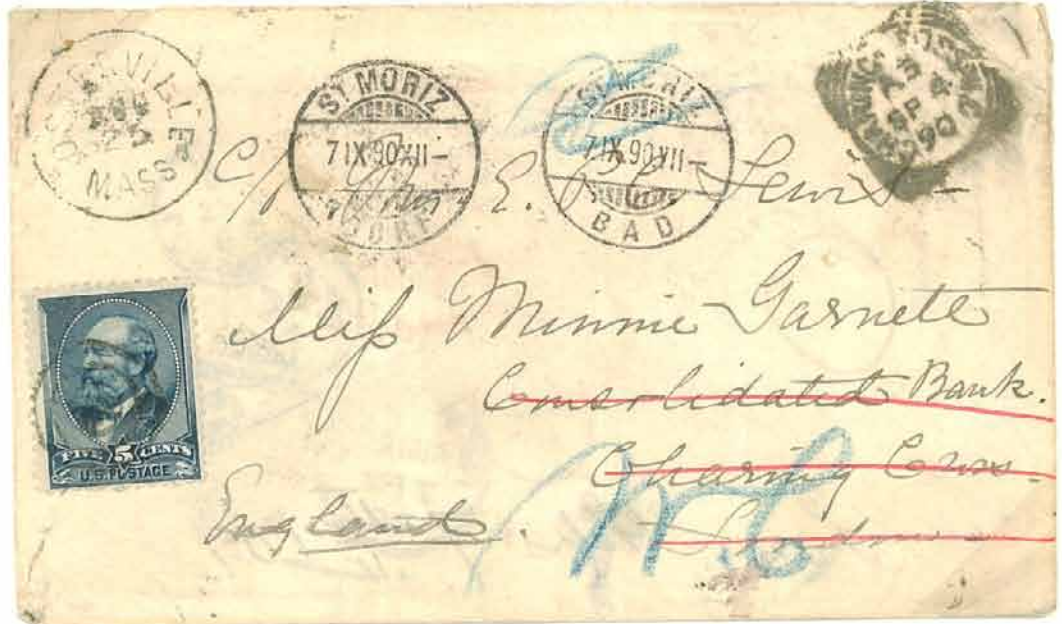 MASS
ST MORIZ
7 IX 90 XII-
DORF
ST MORIZ
7 IX 90 XII-
BAD
CHARING CROSS
SP 4
90
C/o E. Lewis
Miss Minnie Garnett
Consolidated Bank.
Charing Cross.
London
England.
W.C
FIVE 5 CENTS
U.S. POSTAGE